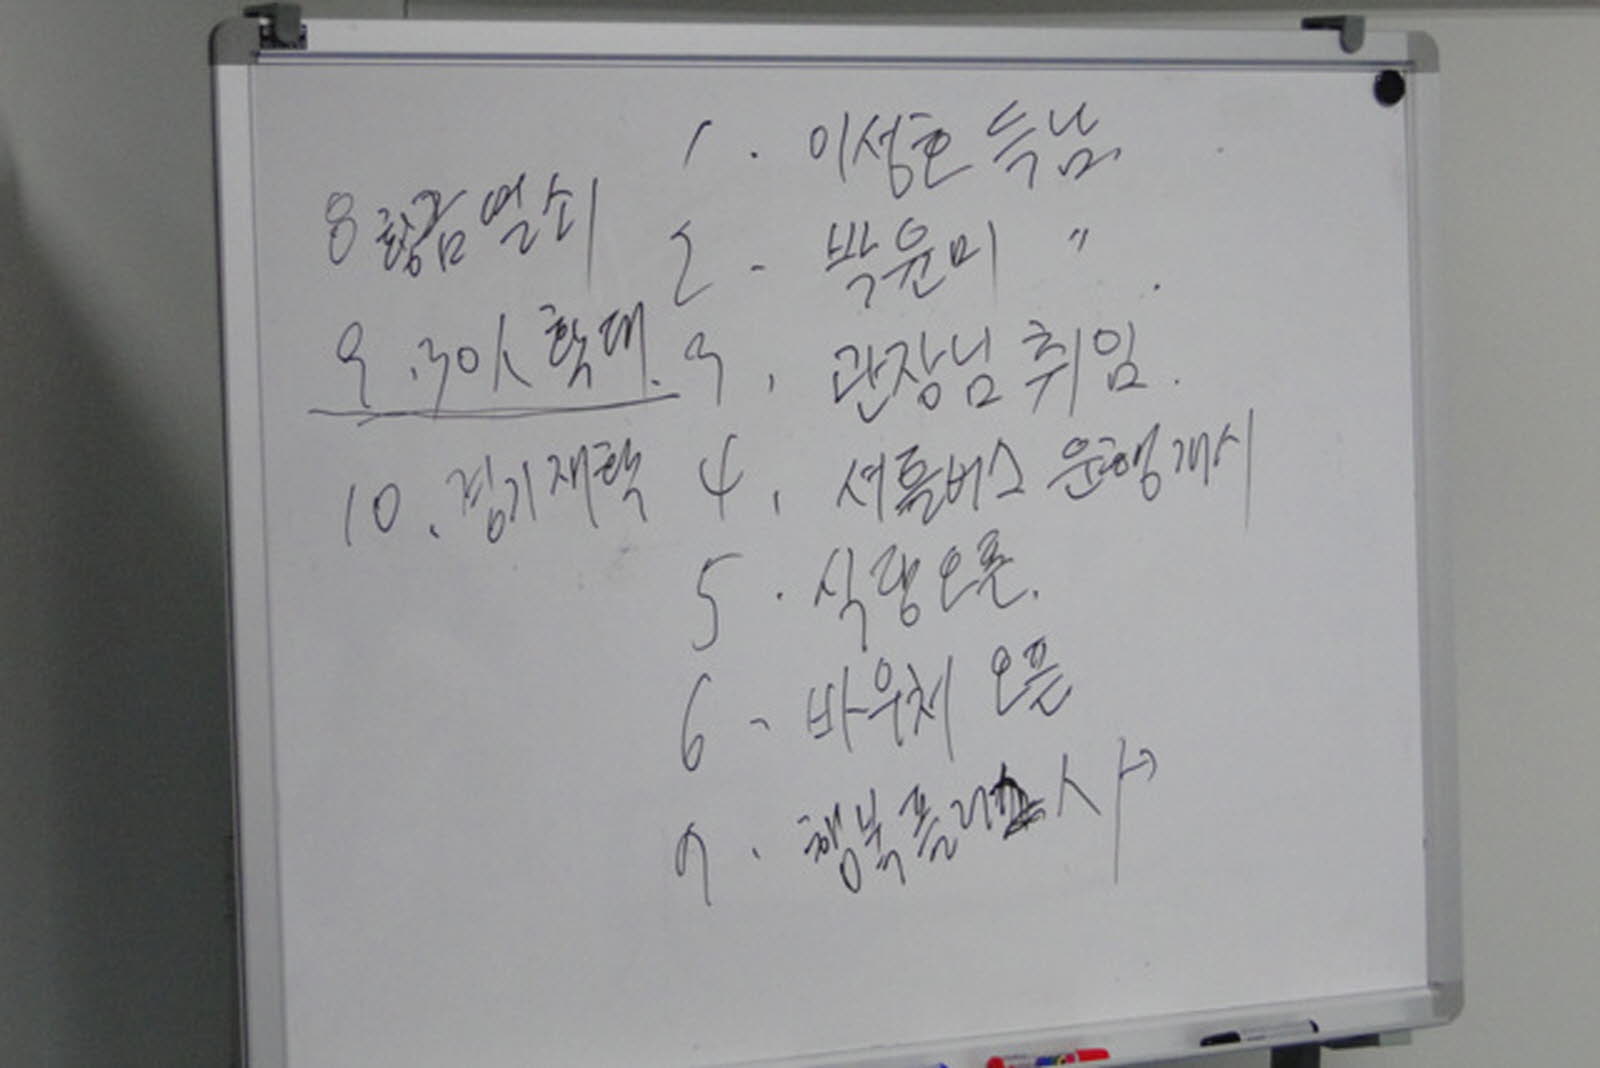 1. 이성호 득남
2 - 박윤미 〃
3, 관장님 취임.
4, 셔틀버스 운행개시
5. 식당오픈.
6 - 바우처 오픈
7. 행복플러스 사
8 황금열쇠
9.30人 확대.
10. 경기재학